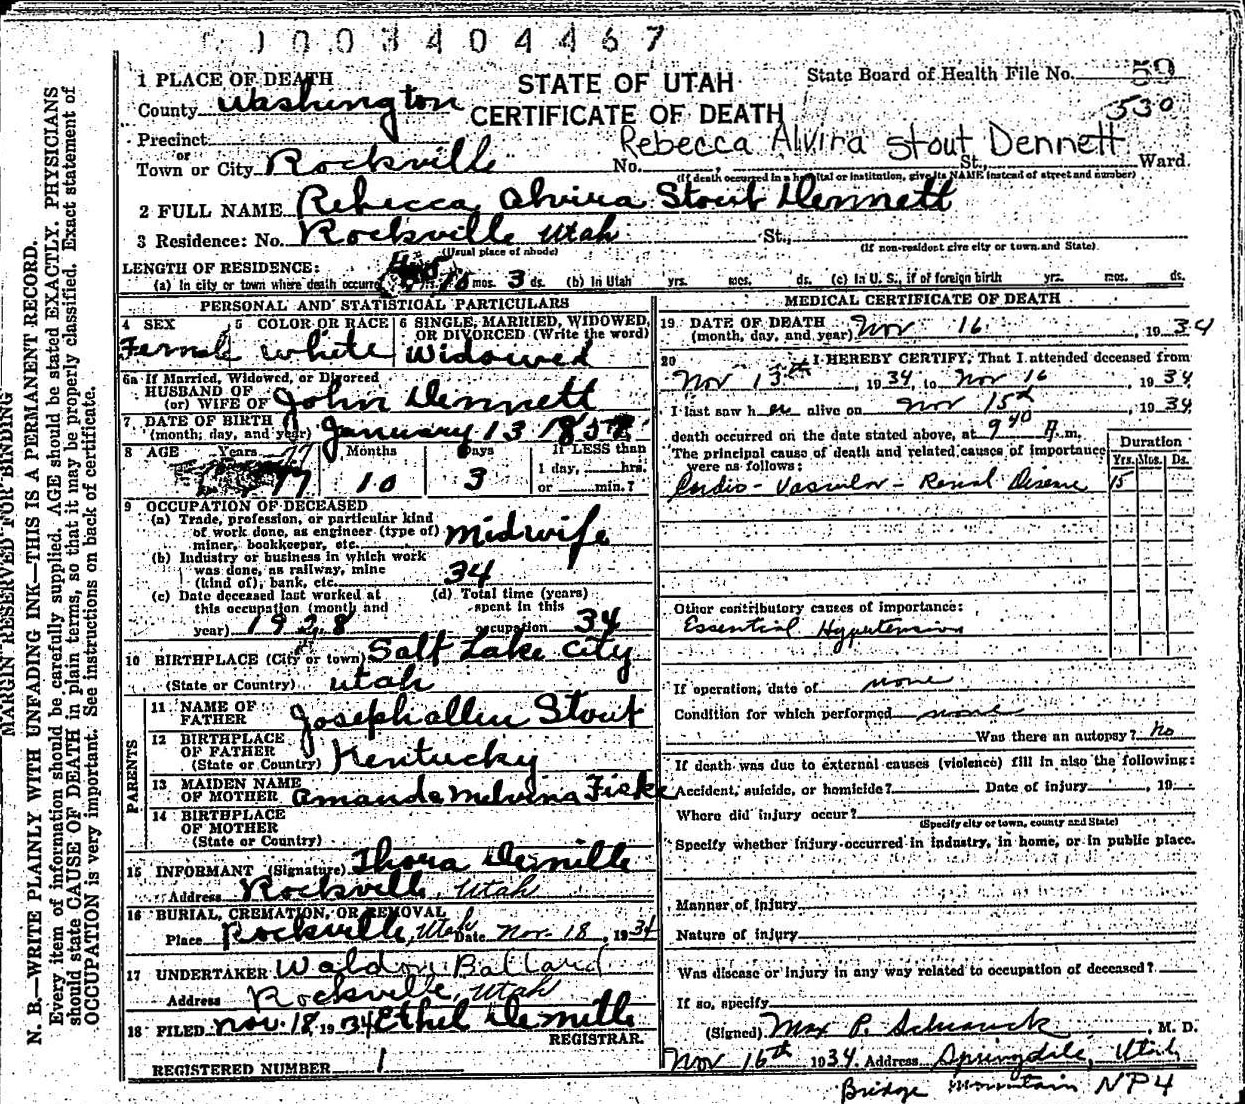 1003404467
1 PLACE OF DEATH
STATE OF UTAH
State Board of Health File No. 59
County Washington
CERTIFICATE OF DEATH
530
Precinct
Rebecca Alvira Stout Dennett
or
Town or City Rockville No. , St., Ward.
(If death occurred in a hospital or institution, give its NAME instead of street and number)
2 FULL NAME Rebecca Alvira Stout Dennett
3 Residence: No. Rockville Utah St.,
(Usual place of abode) (If non-resident give city or town and State)
LENGTH OF RESIDENCE:
(a) In city or town where death occurred yrs. 10 mos. 3 ds. (b) In Utah yrs. mos. ds. (c) In U. S., if of foreign birth yrs. mos. ds.
PERSONAL AND STATISTICAL PARTICULARS
4 SEX 5 COLOR OR RACE 6 SINGLE, MARRIED, WIDOWED,
OR DIVORCED (Write the word)
Female white Widowed
6a If Married, Widowed, or Divorced
HUSBAND OF
(or) WIFE OF John Dennett
7 DATE OF BIRTH
(month, day, and year) January 13 1857
8 AGE Years 77 Months Days If LESS than
1 day, hrs.
or min.?
77 10 3
9 OCCUPATION OF DECEASED
(a) Trade, profession, or particular kind
of work done, as engineer (type of)
miner, bookkeeper, etc. Midwife
(b) Industry or business in which work
was done, as railway, mine
(kind of), bank, etc. 34
(c) Date deceased last worked at
this occupation (month and
year) 1928
(d) Total time (years)
spent in this
occupation 34
10 BIRTHPLACE (City or town) Salt Lake City
(State or Country) Utah
PARENTS
11 NAME OF
FATHER Joseph allen Stout
12 BIRTHPLACE
OF FATHER
(State or Country) Kentucky
13 MAIDEN NAME
OF MOTHER Amanda Melvina Fiske
14 BIRTHPLACE
OF MOTHER
(State or Country)
15 INFORMANT (Signature) Thora Demille
Address Rockville, Utah
16 BURIAL, CREMATION, OR REMOVAL
Place Rockville, Utah Date Nov. 18, 1934
17 UNDERTAKER Waldon Ballard
Address Rockville, Utah
18 FILED Nov. 18, 1934 Ethel Demille
REGISTRAR.
REGISTERED NUMBER 1
MEDICAL CERTIFICATE OF DEATH
19 DATE OF DEATH
(month, day, and year) Nov 16, 1934
20 I HEREBY CERTIFY, That I attended deceased from
Nov 13th, 1934, to Nov 16, 1934
I last saw her alive on Nov 15th, 1934
death occurred on the date stated above, at 9 40 A. m.
The principal cause of death and related causes of importance
were as follows:
Duration
Yrs. Mos. Ds.
Cardio - Vascular - Renal Disease 15
Other contributory causes of importance:
Essential Hypertension
If operation, date of none
Condition for which performed none
Was there an autopsy? no
If death was due to external causes (violence) fill in also the following:
Accident, suicide, or homicide? Date of injury , 19
Where did injury occur?
(Specify city or town, county and State)
Specify whether injury occurred in industry, in home, or in public place.
Manner of injury
Nature of injury
Was disease or injury in any way related to occupation of deceased?
If so, specify
(Signed) Max P. , M. D.
Nov 16th 1934. Address Springdale, Utah
Bridge Mountain NP4
MARGIN RESERVED FOR BINDING
N. B.—WRITE PLAINLY WITH UNFADING INK—THIS IS A PERMANENT RECORD.
Every item of information should be carefully supplied. AGE should be stated EXACTLY. PHYSICIANS
should state CAUSE OF DEATH in plain terms, so that it may be properly classified. Exact statement of
OCCUPATION is very important. See instructions on back of certificate.